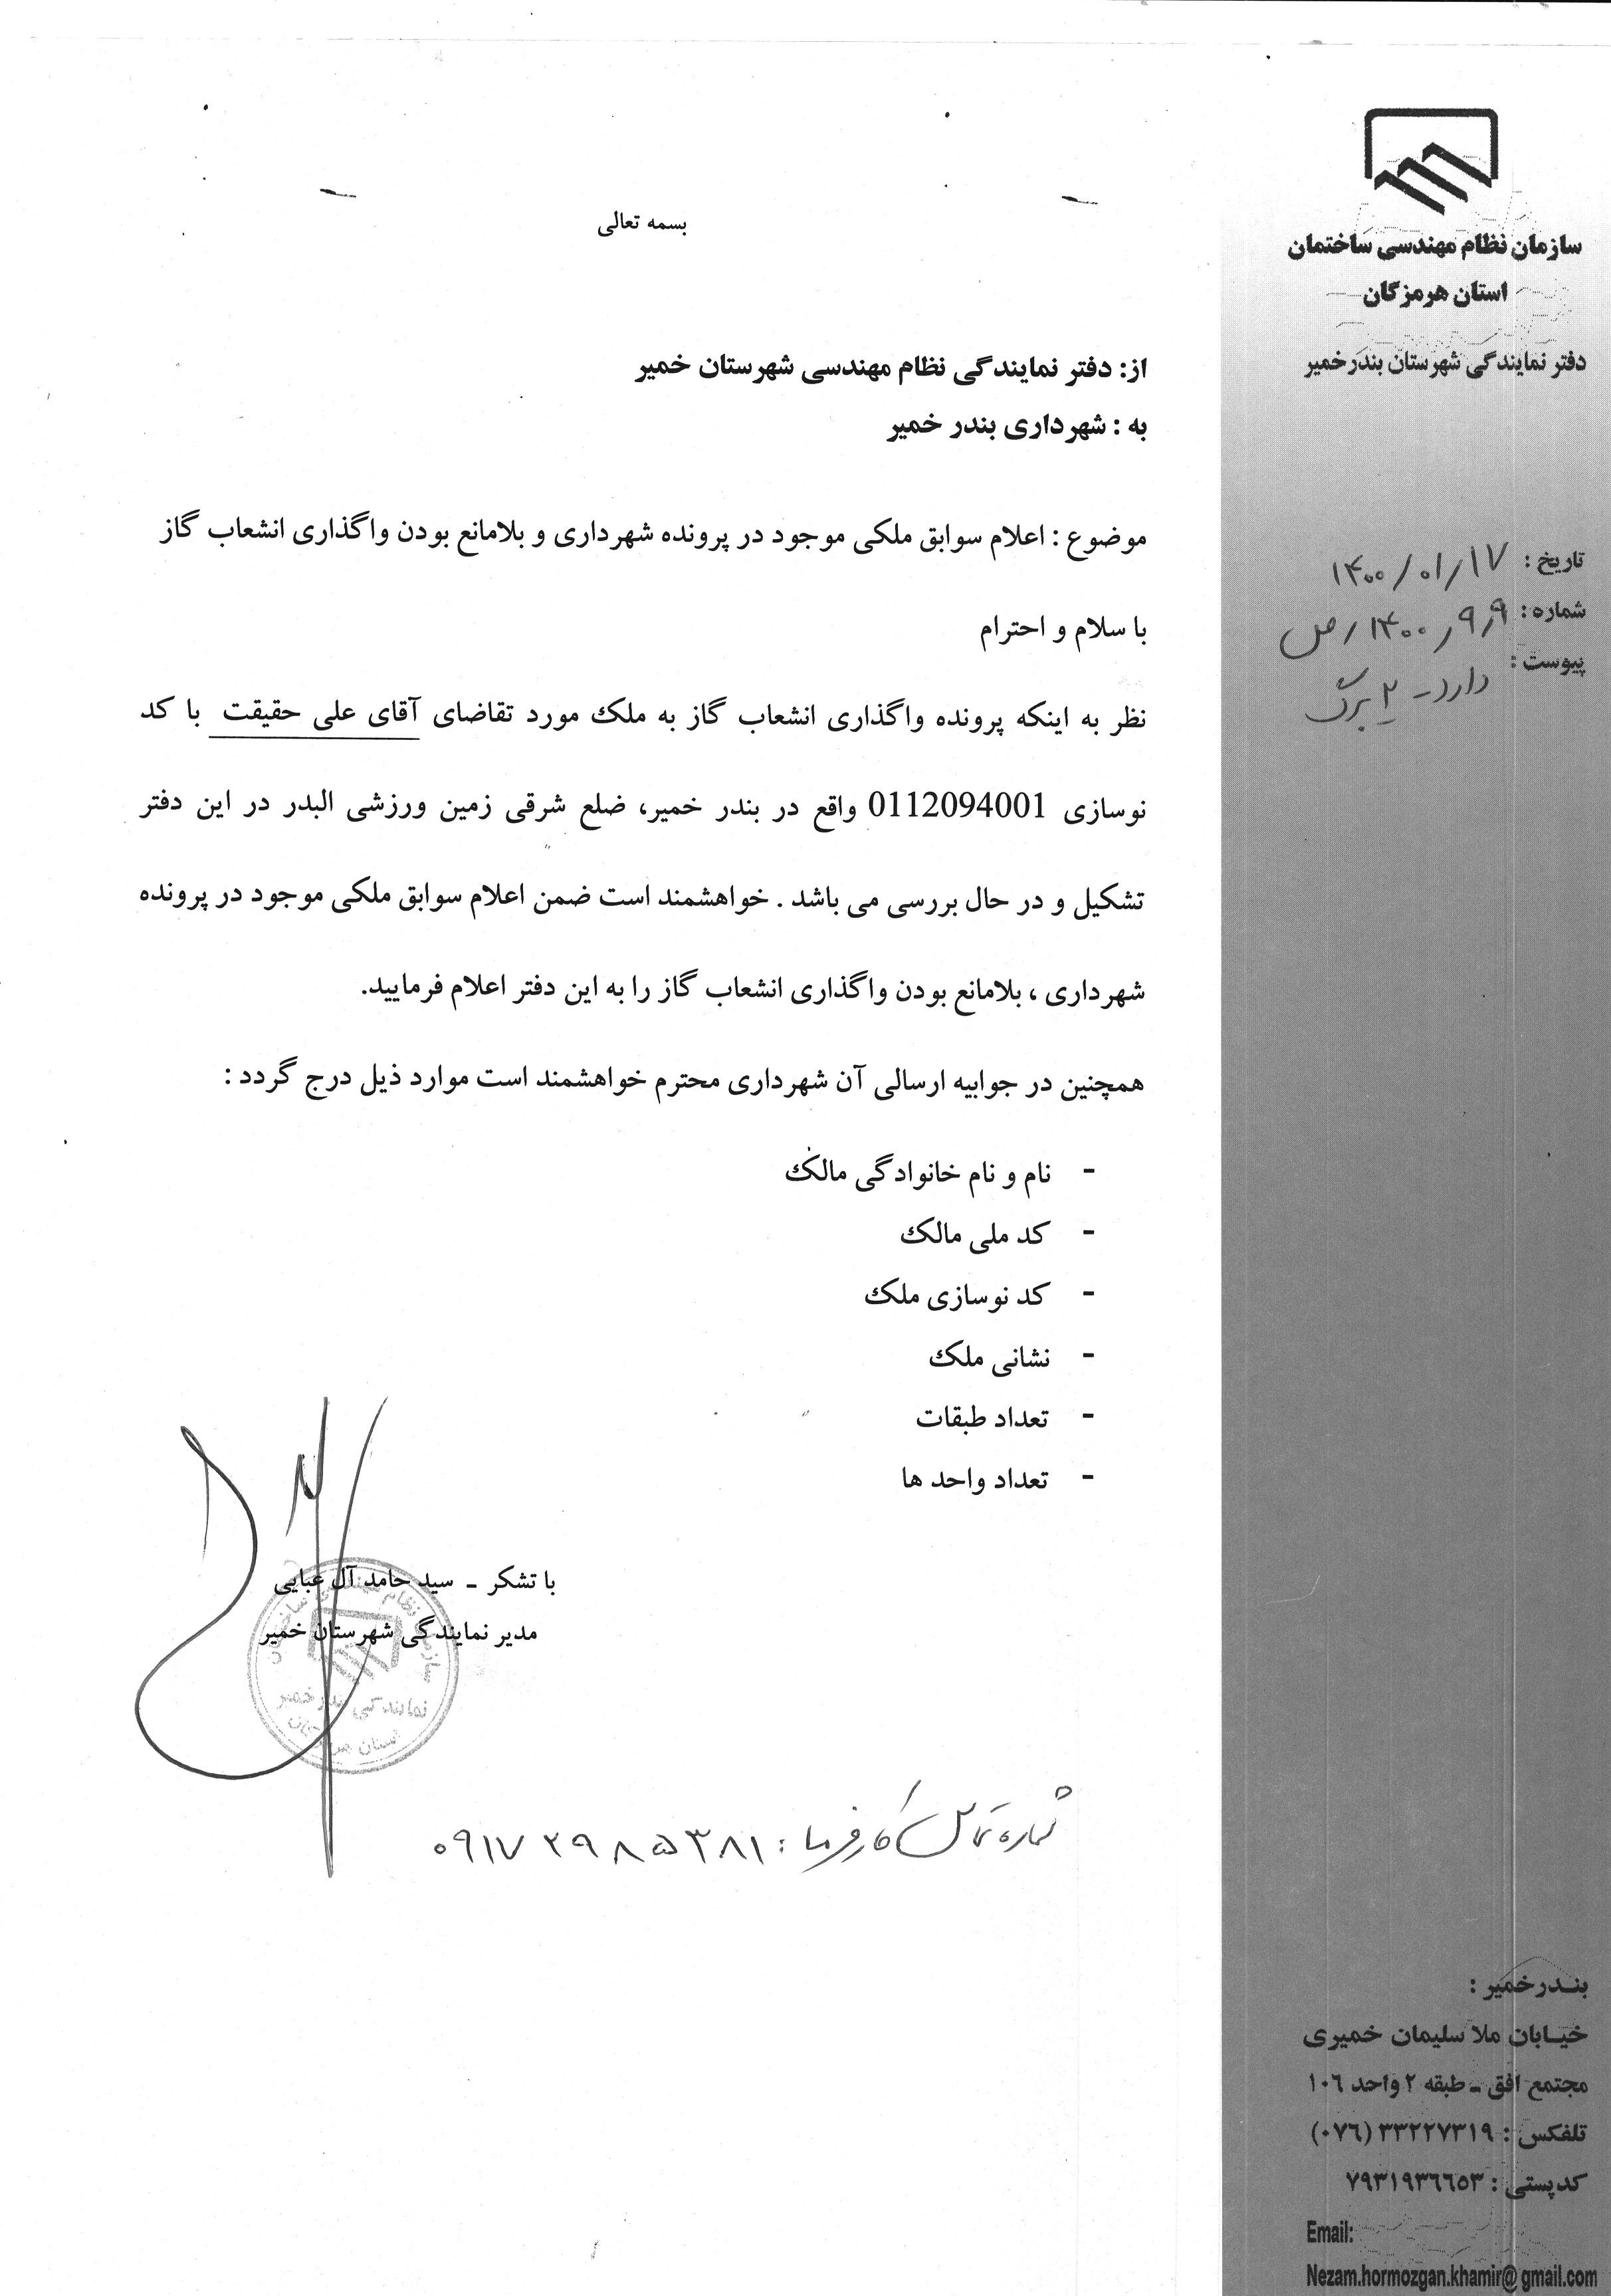 سازمان نظام مهندسی ساختمان
استان هرمزگان
دفتر نمایندگی شهرستان بندرخمیر
تاریخ : ۱۴۰۰/۰۱/۱۷
شماره :
پیوست : دارد - ۲ برگ
بسمه تعالی
از: دفتر نمایندگی نظام مهندسی شهرستان خمیر
به : شهرداری بندر خمیر
موضوع : اعلام سوابق ملکی موجود در پرونده شهرداری و بلامانع بودن واگذاری انشعاب گاز
با سلام و احترام
نظر به اینکه پرونده واگذاری انشعاب گاز به ملک مورد تقاضای آقای علی حقیقت با کد
نوسازی 0112094001 واقع در بندر خمیر، ضلع شرقی زمین ورزشی البدر در این دفتر
تشکیل و در حال بررسی می باشد . خواهشمند است ضمن اعلام سوابق ملکی موجود در پرونده
شهرداری ، بلامانع بودن واگذاری انشعاب گاز را به این دفتر اعلام فرمایید.
همچنین در جوابیه ارسالی آن شهرداری محترم خواهشمند است موارد ذیل درج گردد :
- نام و نام خانوادگی مالک
- کد ملی مالک
- کد نوسازی ملک
- نشانی ملک
- تعداد طبقات
- تعداد واحد ها
با تشکر - سید حامد آل عبایی
مدیر نمایندگی شهرستان خمیر
نمایندگی بندر خمیر
شماره تماس کارفرما : ۰۹۱۷۲۹۸۵۳۸۱
بندرخمیر :
خیابان ملا سلیمان خمیری
مجتمع افق - طبقه ۲ واحد ۱۰۶
تلفکس : ۳۳۲۲۷۳۱۹ (۰۷۶)
کدپستی : ۷۹۳۱۹۳۶۶۵۳
Email:
Nezam.hormozgan.khamir@gmail.com